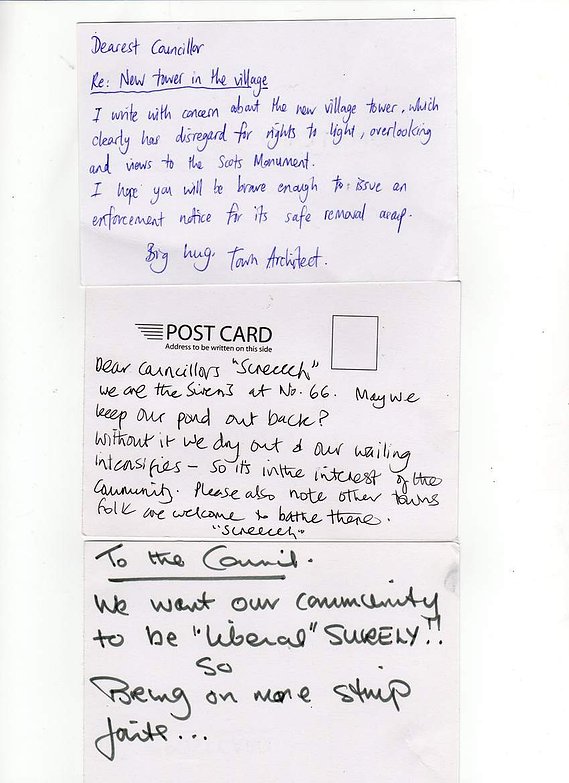 Dearest Councillor
Re: New tower in the village
I write with concern about the new village tower, which
clearly has disregard for rights to light, overlooking
and views to the Scots Monument.
I hope you will be brave enough to issue an
enforcement notice for its safe removal asap.
Big hug. Town Architect.
POST CARD
Address to be written on this side
Dear Councillors "Screeech"
we are the Sirens at No. 66. May we
keep our pond out back?
Without it we dry out & our wailing
intensifies – so it's in the interest of the
Community. Please also note other towns
folk are welcome to bathe there.
"Screeech"
To the Council.
We want our community
to be "liberal" SURELY!!
So
Bring on more strip
joints...